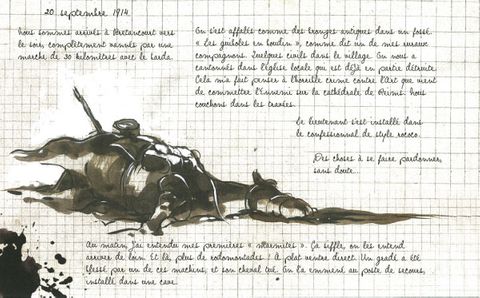 20 septembre 1914
Nous sommes arrivés à Bertancourt vers
le soir, complètement vannés par une
marche de 30 kilomètres avec le barda.
On s'est affalés comme des bronzes antiques dans un fossé.
« Les guiboles en boudin », comme dit un de mes ruraux
compagnons. Quelques civils dans le village. On nous a
cantonnés dans l'église locale qui est déjà en partie détruite.
Cela m'a fait penser à l'horrible crime contre l'Art que vient
de commettre l'Ennemi sur la cathédrale de Reims. Nous
couchons dans les travées.
Le lieutenant s'est installé dans
le confessionnal de style rococo.
Des choses à se faire pardonner,
sans doute...
Au matin, j'ai entendu mes premières « marmites ». Ça siffle, on les entend
arriver de loin. Et là, plus de rodomontades ! À plat ventre direct. Un gradé a été
blessé par un de ces machins, et son cheval tué. On l'a emmené au poste de secours,
installé dans une cave.